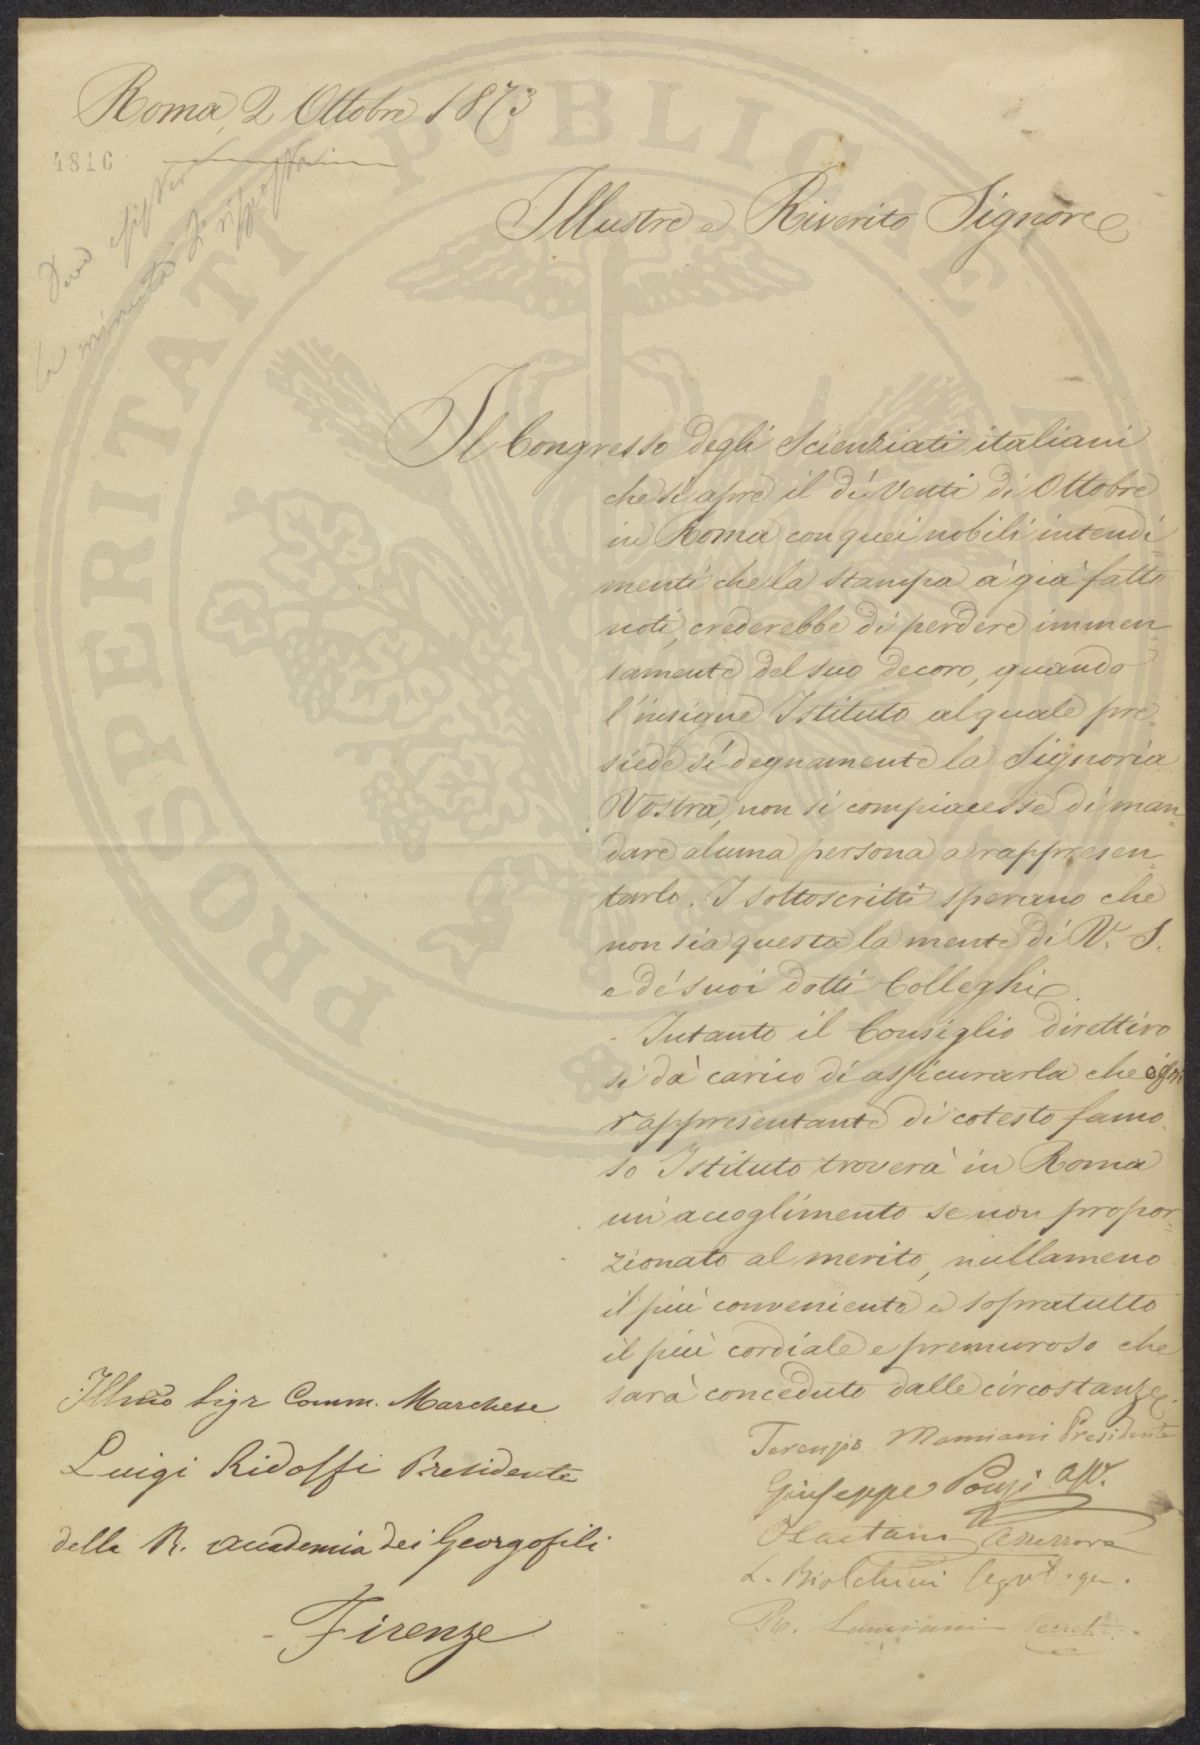 Roma, 2 Ottobre 1873
4816
la minuta di risposta
Illustre e Riverito Signore
Il Congresso degli Scienziati italiani
che si apre il dì Venti di Ottobre
in Roma con quei nobili intendi-
menti che la stampa à già fatto
noti, crederebbe di perdere immen-
samente del suo decoro, quando
l'insigne Istituto al quale pre-
siede sì degnamente la Signoria
Vostra, non si compiacesse di man-
dare alcuna persona a rappresen-
tarlo. I sottoscritti sperano che
non sia questa la mente di V. S.
e dé suoi dotti Colleghi.
Intanto il Consiglio direttivo
si dà carico di assicurarla che ogni
rappresentante di cotesto famo-
so Istituto troverà in Roma
un accoglimento se non propor-
zionato al merito, nullameno
il più conveniente e sopratutto
il più cordiale e premuroso che
sarà conceduto dalle circostanze.
Terenzio Mamiani Presidente
Giuseppe Ponzi Ass.
O Caetani Assessore
L. Biolchini Segret. gen.
Illmo Sigr Comm. Marchese
Luigi Ridolfi Presidente
della R. Accademia dei Georgofili
Firenze
PROSPERITATI PUBLICAE